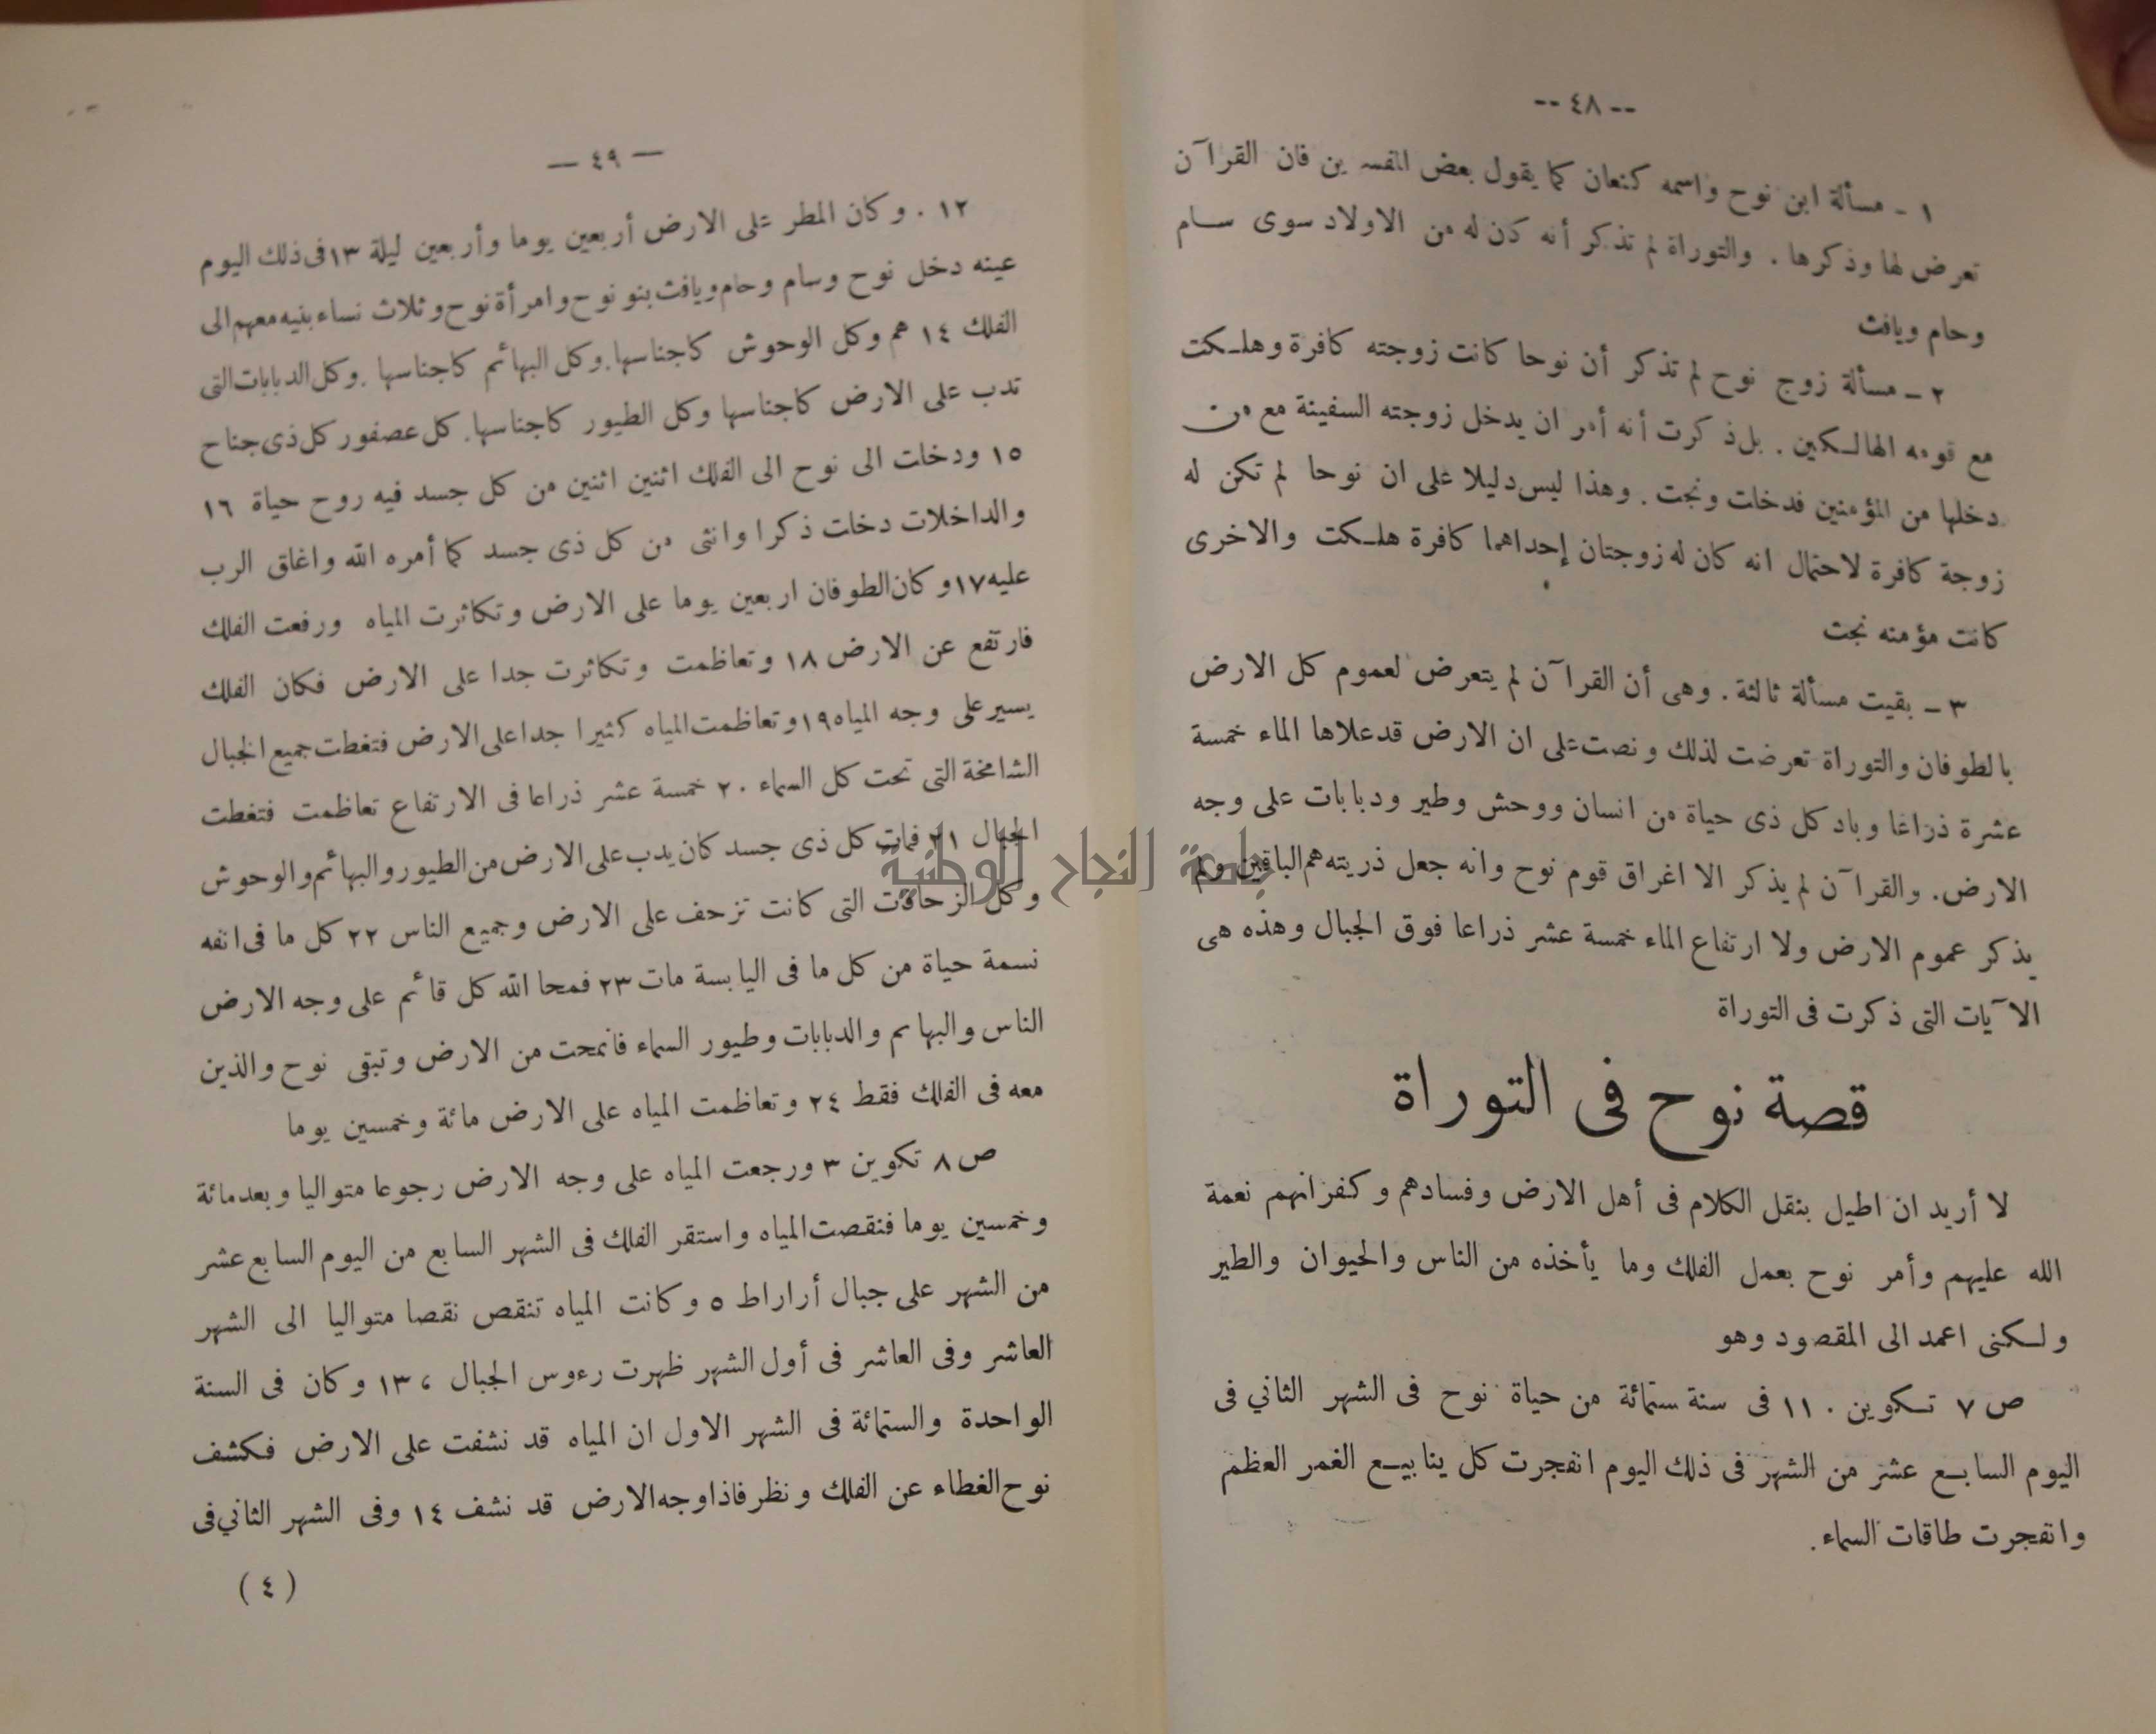 -- ٤٨ --
١ - مسألة ابن نوح واسمه كنعان كما يقول بعض المفسرين فان القرآن
تعرض لها وذكرها . والتوراة لم تذكر أنه كان له من الاولاد سوى سام
وحام ويافث
٢ - مسألة زوج نوح لم تذكر أن نوحا كانت زوجته كافرة وهلكت
مع قومه الهالكين . بل ذكرت أنه أمر ان يدخل زوجته السفينة مع من
دخلها من المؤمنين فدخلت ونجت . وهذا ليس دليلا على ان نوحا لم تكن له
زوجة كافرة لاحتمال انه كان له زوجتان إحداهما كافرة هلكت والاخرى
كانت مؤمنه نجت
٣ - بقيت مسألة ثالثة . وهى أن القرآن لم يتعرض لعموم كل الارض
بالطوفان والتوراة تعرضت لذلك ونصت على ان الارض قد علاها الماء خمسة
عشرة ذراعا وباد كل ذى حياة من انسان ووحش وطير ودبابات على وجه
الارض . والقرآن لم يذكر الا اغراق قوم نوح وانه جعل ذريته هم الباقين ولم
يذكر عموم الارض ولا ارتفاع الماء خمسة عشر ذراعا فوق الجبال وهذه هى
الآيات التى ذكرت فى التوراة
قصة نوح فى التوراة
لا أريد ان اطيل بنقل الكلام فى أهل الارض وفسادهم وكفرانهم نعمة
الله عليهم وأمر نوح بعمل الفلك وما يأخذه من الناس والحيوان والطير
ولكنى اعمد الى المقصود وهو
ص ٧ تكوين . ١١ فى سنة ستمائة من حياة نوح فى الشهر الثاني فى
اليوم السابع عشر من الشهر فى ذلك اليوم انفجرت كل ينابيع الغمر العظم
وانفجرت طاقات السماء.
— ٤٩ —
١٢ . وكان المطر على الارض أربعين يوما وأربعين ليلة ١٣ فى ذلك اليوم
عينه دخل نوح وسام وحام ويافث بنو نوح وامرأة نوح وثلاث نساء بنيه معهم الى
الفلك ١٤ هم وكل الوحوش كاجناسها. وكل البهائم كاجناسها . وكل الدبابات التى
تدب على الارض كاجناسها وكل الطيور كاجناسها. كل عصفور كل ذى جناح
١٥ ودخلت الى نوح الى الفلك اثنين اثنين من كل جسد فيه روح حياة ١٦
والداخلات دخلت ذكرا وانثى من كل ذى جسد كما أمره الله واغلق الرب
عليه ١٧ وكان الطوفان اربعين يوما على الارض وتكاثرت المياه ورفعت الفلك
فارتفع عن الارض ١٨ وتعاظمت وتكاثرت جدا على الارض فكان الفلك
يسير على وجه المياه ١٩ وتعاظمت المياه كثيرا جدا على الارض فتغطت جميع الجبال
الشامخة التى تحت كل السماء ٢٠ خمسة عشر ذراعا فى الارتفاع تعاظمت فتغطت
الجبال ٢١ فمات كل ذى جسد كان يدب على الارض من الطيور والبهائم والوحوش
وكل الزحافات التى كانت تزحف على الارض وجميع الناس ٢٢ كل ما فى انفه
نسمة حياة من كل ما فى اليابسة مات ٢٣ فمحا الله كل قائم على وجه الارض
الناس والبهائم والدبابات وطيور السماء فانمحت من الارض وتبقى نوح والذين
معه فى الفلك فقط ٢٤ وتعاظمت المياه على الارض مائة وخمسين يوما
ص ٨ تكوين ٣ ورجعت المياه على وجه الارض رجوعا متواليا وبعد مائة
وخمسين يوما فنقصت المياه واستقر الفلك فى الشهر السابع من اليوم السابع عشر
من الشهر على جبال أراراط ٥ وكانت المياه تنقص نقصا متواليا الى الشهر
العاشر وفى العاشر فى أول الشهر ظهرت رءوس الجبال ، ١٣ وكان فى السنة
الواحدة والستمائة فى الشهر الاول ان المياه قد نشفت على الارض فكشف
نوح الغطاء عن الفلك ونظر فاذا وجه الارض قد نشف ١٤ وفى الشهر الثاني فى
( ٤ )
جامعة النجاح الوطنية